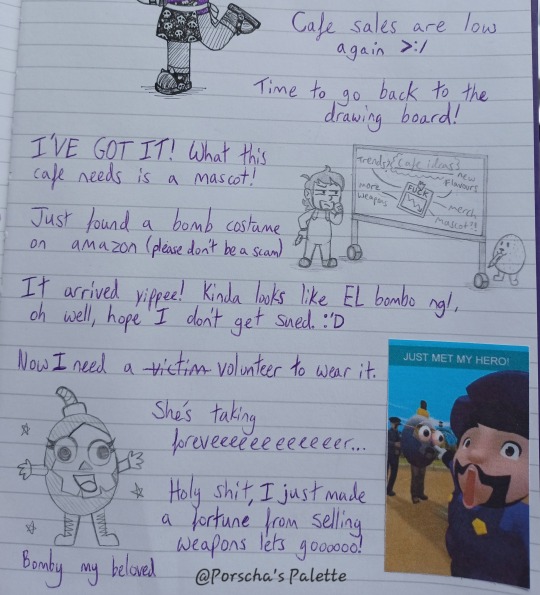 Cafe sales are low
again >:/
Time to go back to the
drawing board!
I'VE GOT IT! What this
cafe needs is a mascot!
Trends?
Cafe ideas
new
flavours
more
weapons
FUCK
merch
Mascot?!
Just found a bomb costume
on amazon (please don't be a scam)
It arrived yippee! Kinda looks like EL bombo ngl,
oh well, hope I don't get sued. :'D
Now I need a victim volunteer to wear it.
JUST MET MY HERO!
She's taking
foreveeeeeeeeeeeer...
Holy shit, I just made
a fortune from selling
weapons lets goooooo!
Bomby my beloved
@Porscha's Palette